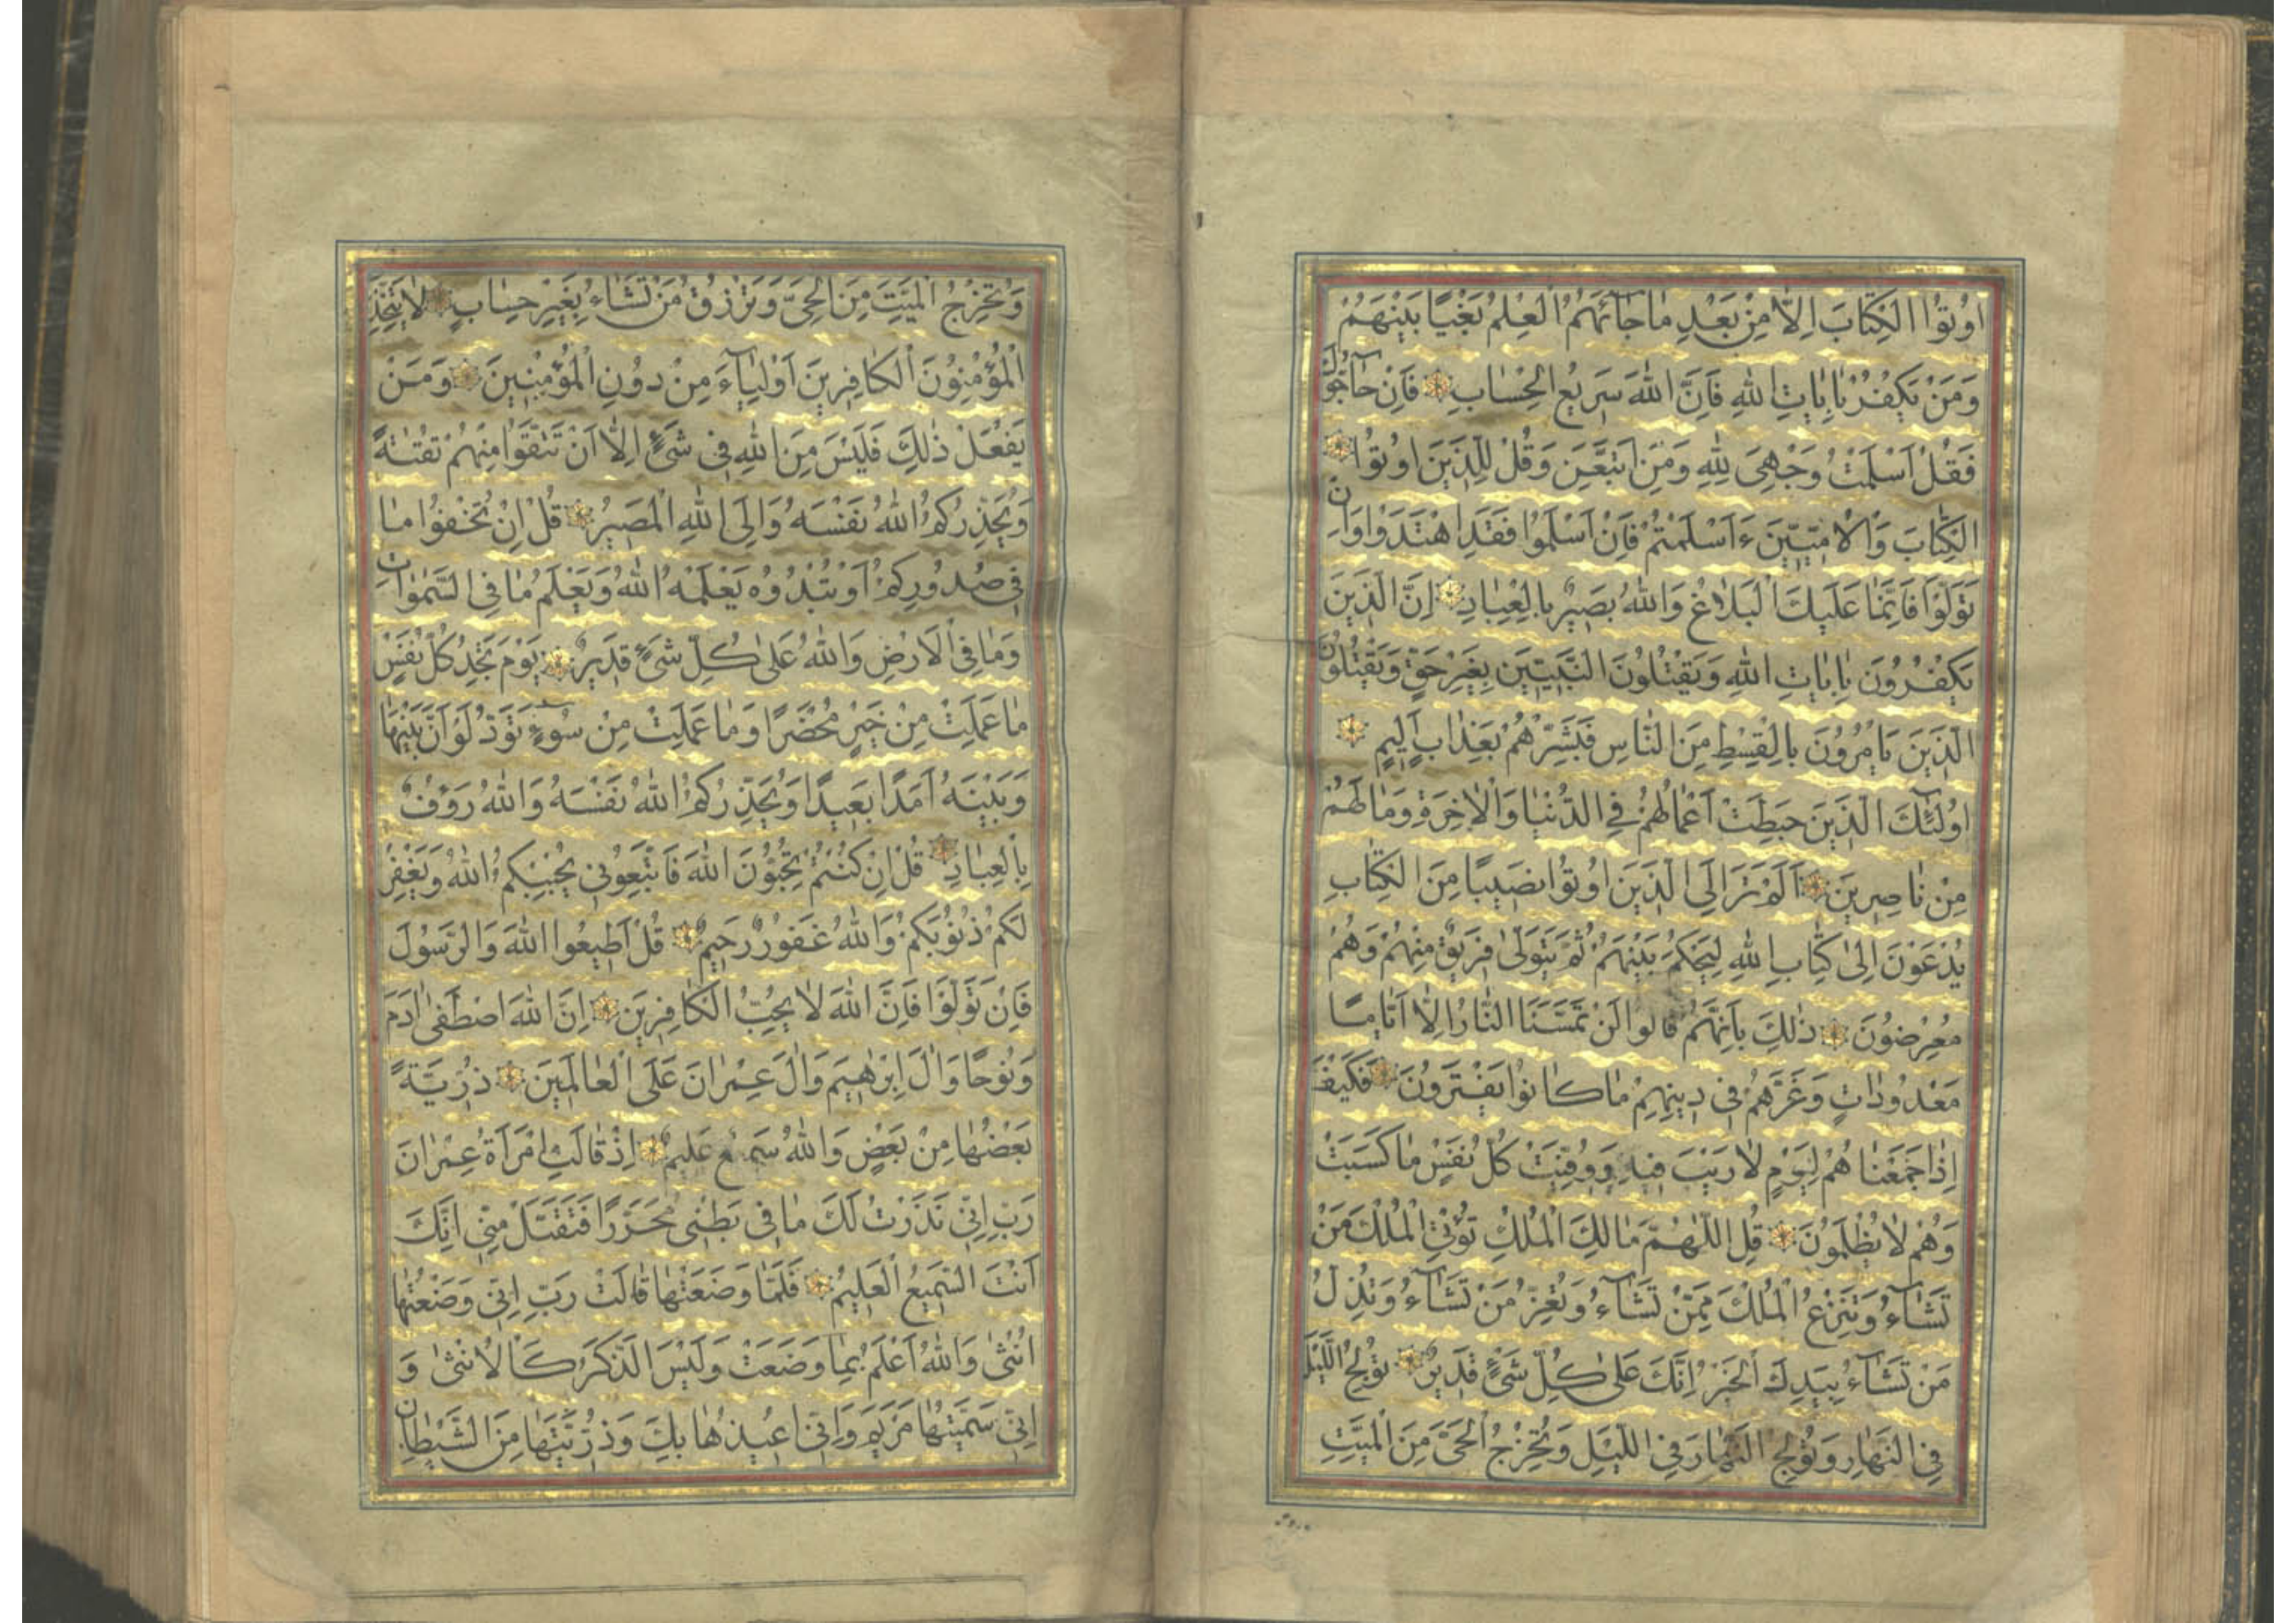 اُوتُوا الْكِتَابَ اِلَّا مِنْ بَعْدِ مَا جَائَهُمُ الْعِلْمُ بَغْيًا بَيْنَهُمْ
وَمَنْ يَكْفُرْ بِاٰيَاتِ اللّٰهِ فَاِنَّ اللّٰهَ سَرِيعُ الْحِسَابِ فَاِنْ حَاجُّوكَ
فَقُلْ اَسْلَمْتُ وَجْهِىَ لِلّٰهِ وَمَنِ اتَّبَعَنِ وَقُلْ لِلَّذِينَ اُوتُوا
الْكِتَابَ وَالْاُمِّيِّينَ ءَاَسْلَمْتُمْ فَاِنْ اَسْلَمُوا فَقَدِ اهْتَدَوْا وَاِنْ
تَوَلَّوْا فَاِنَّمَا عَلَيْكَ الْبَلَاغُ وَاللّٰهُ بَصِيرٌ بِالْعِبَادِ اِنَّ الَّذِينَ
يَكْفُرُونَ بِاٰيَاتِ اللّٰهِ وَيَقْتُلُونَ النَّبِيِّينَ بِغَيْرِ حَقٍّ وَيَقْتُلُونَ
الَّذِينَ يَاْمُرُونَ بِالْقِسْطِ مِنَ النَّاسِ فَبَشِّرْهُمْ بِعَذَابٍ اَلِيمٍ
اُولٰئِكَ الَّذِينَ حَبِطَتْ اَعْمَالُهُمْ فِى الدُّنْيَا وَالْاٰخِرَةِ وَمَا لَهُمْ
مِنْ نَاصِرِينَ اَلَمْ تَرَ اِلَى الَّذِينَ اُوتُوا نَصِيبًا مِنَ الْكِتَابِ
يُدْعَوْنَ اِلٰى كِتَابِ اللّٰهِ لِيَحْكُمَ بَيْنَهُمْ ثُمَّ يَتَوَلّٰى فَرِيقٌ مِنْهُمْ وَهُمْ
مُعْرِضُونَ ذٰلِكَ بِاَنَّهُمْ قَالُوا لَنْ تَمَسَّنَا النَّارُ اِلَّا اَيَّامًا
مَعْدُودَاتٍ وَغَرَّهُمْ فِى دِينِهِمْ مَا كَانُوا يَفْتَرُونَ فَكَيْفَ
اِذَا جَمَعْنَاهُمْ لِيَوْمٍ لَا رَيْبَ فِيهِ وَوُفِّيَتْ كُلُّ نَفْسٍ مَا كَسَبَتْ
وَهُمْ لَا يُظْلَمُونَ قُلِ اللّٰهُمَّ مَالِكَ الْمُلْكِ تُؤْتِى الْمُلْكَ مَنْ
تَشَآءُ وَتَنْزِعُ الْمُلْكَ مِمَّنْ تَشَآءُ وَتُعِزُّ مَنْ تَشَآءُ وَتُذِلُّ
مَنْ تَشَآءُ بِيَدِكَ الْخَيْرُ اِنَّكَ عَلٰى كُلِّ شَىْءٍ قَدِيرٌ تُولِجُ اللَّيْلَ
فِى النَّهَارِ وَتُولِجُ النَّهَارَ فِى اللَّيْلِ وَتُخْرِجُ الْحَىَّ مِنَ الْمَيِّتِ
وَتُخْرِجُ الْمَيِّتَ مِنَ الْحَىِّ وَتَرْزُقُ مَنْ تَشَاءُ بِغَيْرِ حِسَابٍ لَا يَتَّخِذِ
الْمُؤْمِنُونَ الْكَافِرِينَ اَوْلِيَآءَ مِنْ دُونِ الْمُؤْمِنِينَ وَمَنْ
يَفْعَلْ ذٰلِكَ فَلَيْسَ مِنَ اللّٰهِ فِى شَىْءٍ اِلَّا اَنْ تَتَّقُوا مِنْهُمْ تُقٰيةً
وَيُحَذِّرُكُمُ اللّٰهُ نَفْسَهُ وَاِلَى اللّٰهِ الْمَصِيرُ قُلْ اِنْ تُخْفُوا مَا
فِى صُدُورِكُمْ اَوْ تُبْدُوهُ يَعْلَمْهُ اللّٰهُ وَيَعْلَمُ مَا فِى السَّمٰوَاتِ
وَمَا فِى الْاَرْضِ وَاللّٰهُ عَلٰى كُلِّ شَىْءٍ قَدِيرٌ يَوْمَ تَجِدُ كُلُّ نَفْسٍ
مَا عَمِلَتْ مِنْ خَيْرٍ مُحْضَرًا وَمَا عَمِلَتْ مِنْ سُوءٍ تَوَدُّ لَوْ اَنَّ بَيْنَهَا
وَبَيْنَهُ اَمَدًا بَعِيدًا وَيُحَذِّرُكُمُ اللّٰهُ نَفْسَهُ وَاللّٰهُ رَؤُفٌ
بِالْعِبَادِ قُلْ اِنْ كُنْتُمْ تُحِبُّونَ اللّٰهَ فَاتَّبِعُونِى يُحْبِبْكُمُ اللّٰهُ وَيَغْفِرْ
لَكُمْ ذُنُوبَكُمْ وَاللّٰهُ غَفُورٌ رَحِيمٌ قُلْ اَطِيعُوا اللّٰهَ وَالرَّسُولَ
فَاِنْ تَوَلَّوْا فَاِنَّ اللّٰهَ لَا يُحِبُّ الْكَافِرِينَ اِنَّ اللّٰهَ اصْطَفٰى اٰدَمَ
وَنُوحًا وَاٰلَ اِبْرٰهِيمَ وَاٰلَ عِمْرَانَ عَلَى الْعَالَمِينَ ذُرِّيَّةً
بَعْضُهَا مِنْ بَعْضٍ وَاللّٰهُ سَمِيعٌ عَلِيمٌ اِذْ قَالَتِ امْرَاَةُ عِمْرَانَ
رَبِّ اِنِّى نَذَرْتُ لَكَ مَا فِى بَطْنِى مُحَرَّرًا فَتَقَبَّلْ مِنِّى اِنَّكَ
اَنْتَ السَّمِيعُ الْعَلِيمُ فَلَمَّا وَضَعَتْهَا قَالَتْ رَبِّ اِنِّى وَضَعْتُهَا
اُنْثٰى وَاللّٰهُ اَعْلَمُ بِمَا وَضَعَتْ وَلَيْسَ الذَّكَرُ كَالْاُنْثٰى وَ
اِنِّى سَمَّيْتُهَا مَرْيَمَ وَاِنِّى اُعِيذُهَا بِكَ وَذُرِّيَّتَهَا مِنَ الشَّيْطَانِ